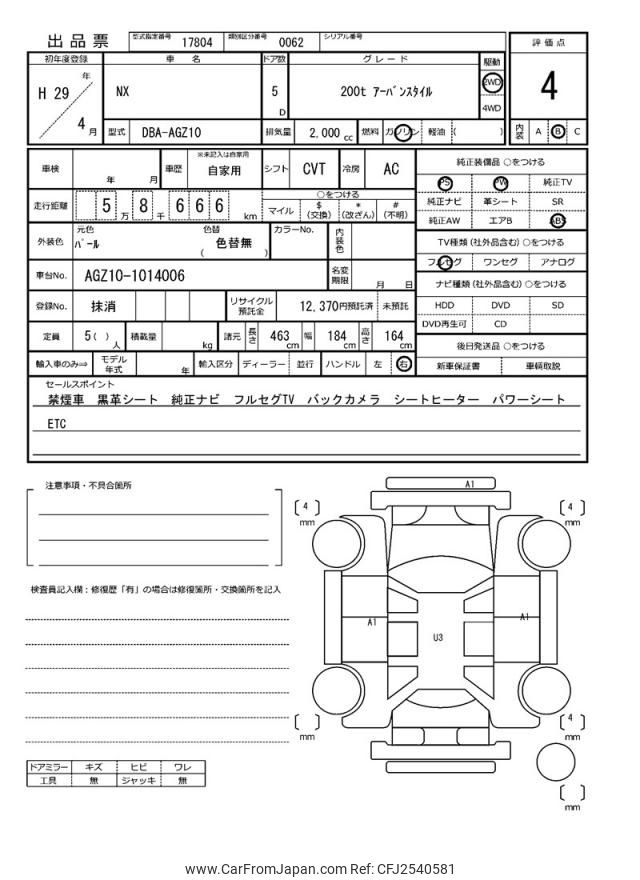 出品票
型式指定番号 17804 類別区分番号 0062 シリアル番号
初年度登録 車名 ドア数 グレード 駆動 評価点
H 29 年 4 月
NX 5 D 200t アーバンスタイル 2WD 4WD
4
型式 DBA-AGZ10 排気量 2,000 cc 燃料 ガソリン 軽油 ( )
内装 A B C
車検 年 月 車歴 ※未記入は自家用 自家用 シフト CVT 冷房 AC
純正装備品 ○をつける
PS PW 純正TV
純正ナビ 革シート SR
純正AW エアB ABS
走行距離 5 万 8 千 6 6 6 km
○をつける
マイル $ (交換) * (改ざん) # (不明)
外装色 元色 パール 色替 色替無 ( ) カラーNo. 内装色
TV種類 (社外品含む) ○をつける
フルセグ ワンセグ アナログ
車台No. AGZ10-1014006 名変期限 月 日
ナビ種類 (社外品含む) ○をつける
HDD DVD SD
DVD再生可 CD
登録No. 抹消 リサイクル預託金 12,370円預託済 未預託
定員 5( ) 人 積載量 kg 諸元 長さ 463 cm 幅 184 cm 高さ 164 cm
後日発送品 ○をつける
新車保証書 車輌取説
輸入車のみ⇒ モデル年式 年 輸入区分 ディーラー 並行 ハンドル 左 右
セールスポイント
禁煙車 黒革シート 純正ナビ フルセグTV バックカメラ シートヒーター パワーシート
ETC
注意事項・不具合箇所
検査員記入欄：修復歴「有」の場合は修復箇所・交換箇所を記入
A1
4 mm
4 mm
A1
U3
A1
mm
4 mm
mm
ドアミラー キズ ヒビ ワレ
工具 無 ジャッキ 無
www.CarFromJapan.com Ref: CFJ2540581